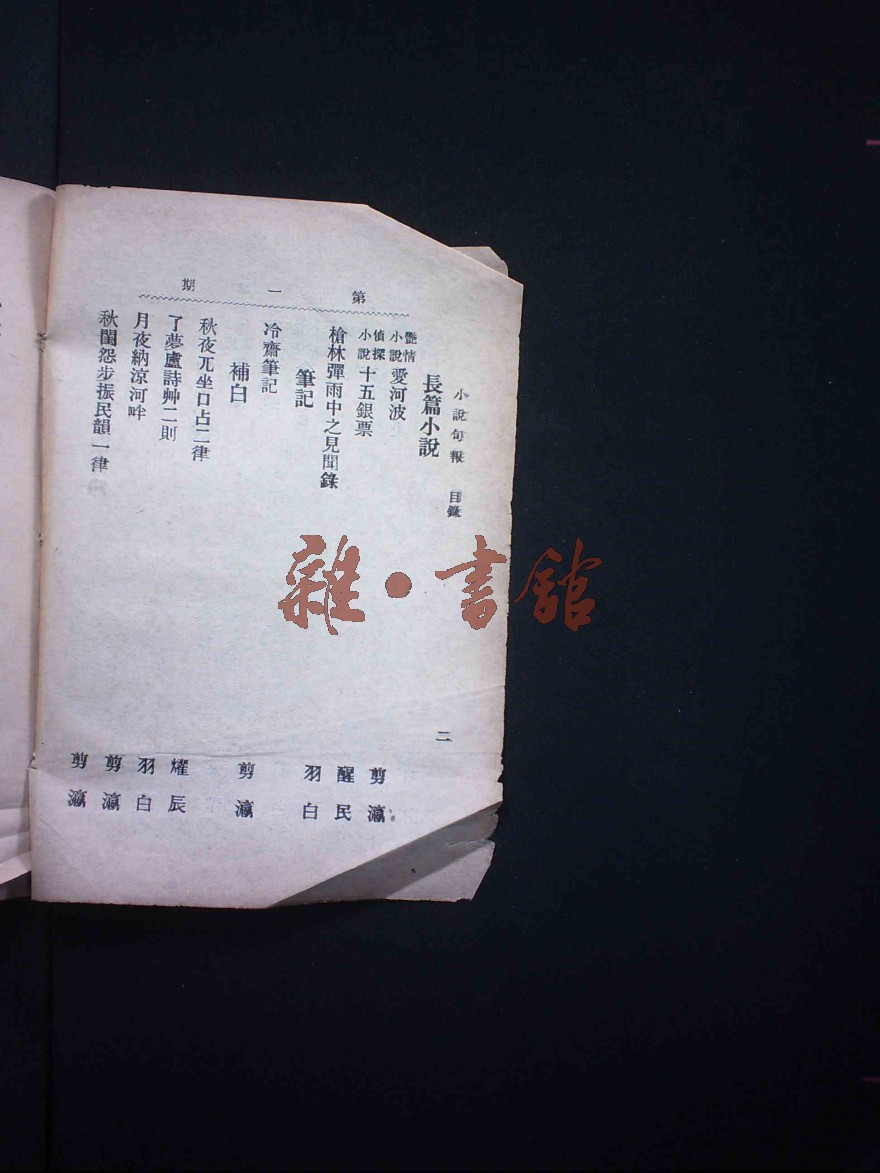 小說旬報 目錄 二
第一期
長篇小說
艷情小說 愛河波 剪瀛
偵探小說 十五銀票 醒民
槍林彈雨中之見聞錄 羽白
筆記
冷齋筆記 剪瀛
補白
秋夜兀坐口占二律 耀辰
了夢廬詩艸二則 羽白
月夜納涼河畔 剪瀛
秋閨怨步振民韻一律 剪瀛
雜·書館